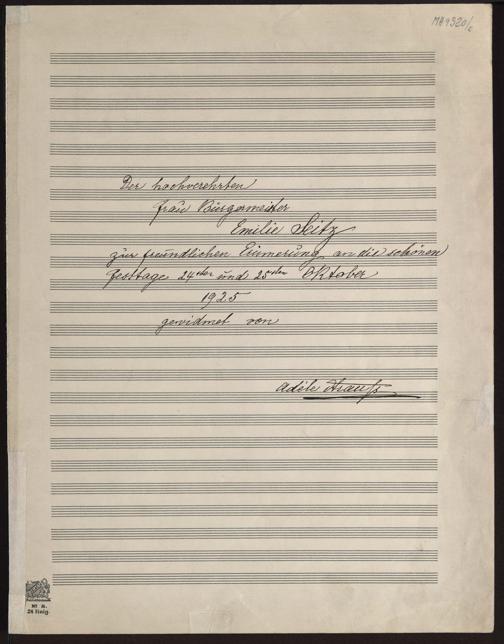 MH 9320/c
Der hochverehrten
Frau Bürgermeister
Emilie Seitz
zur freundlichen Erinnerung an die schönen
Festtage 24ten und 25ten Oktober
1925
gewidmet von
Adèle Strauß
No 8.
24 linig.